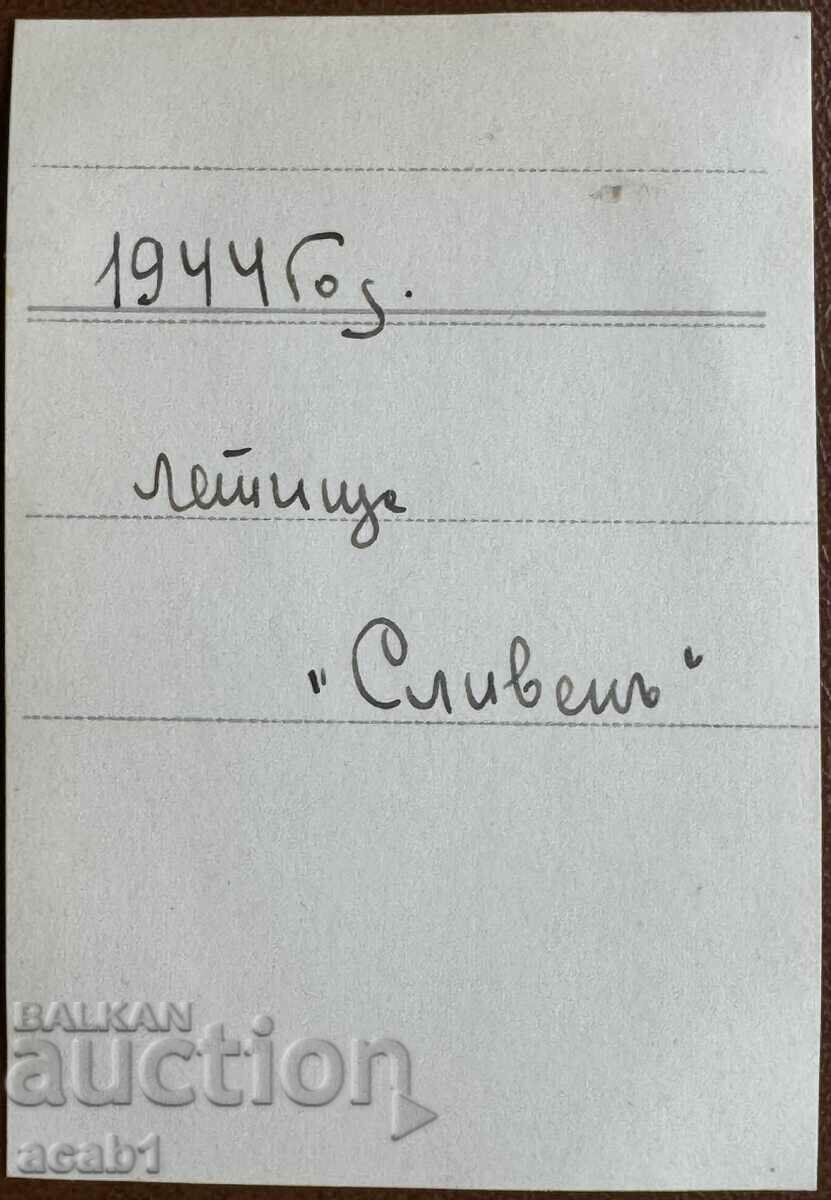 1944 Год.
Летище
"Сливенъ"
BALKAN
auction
acab1